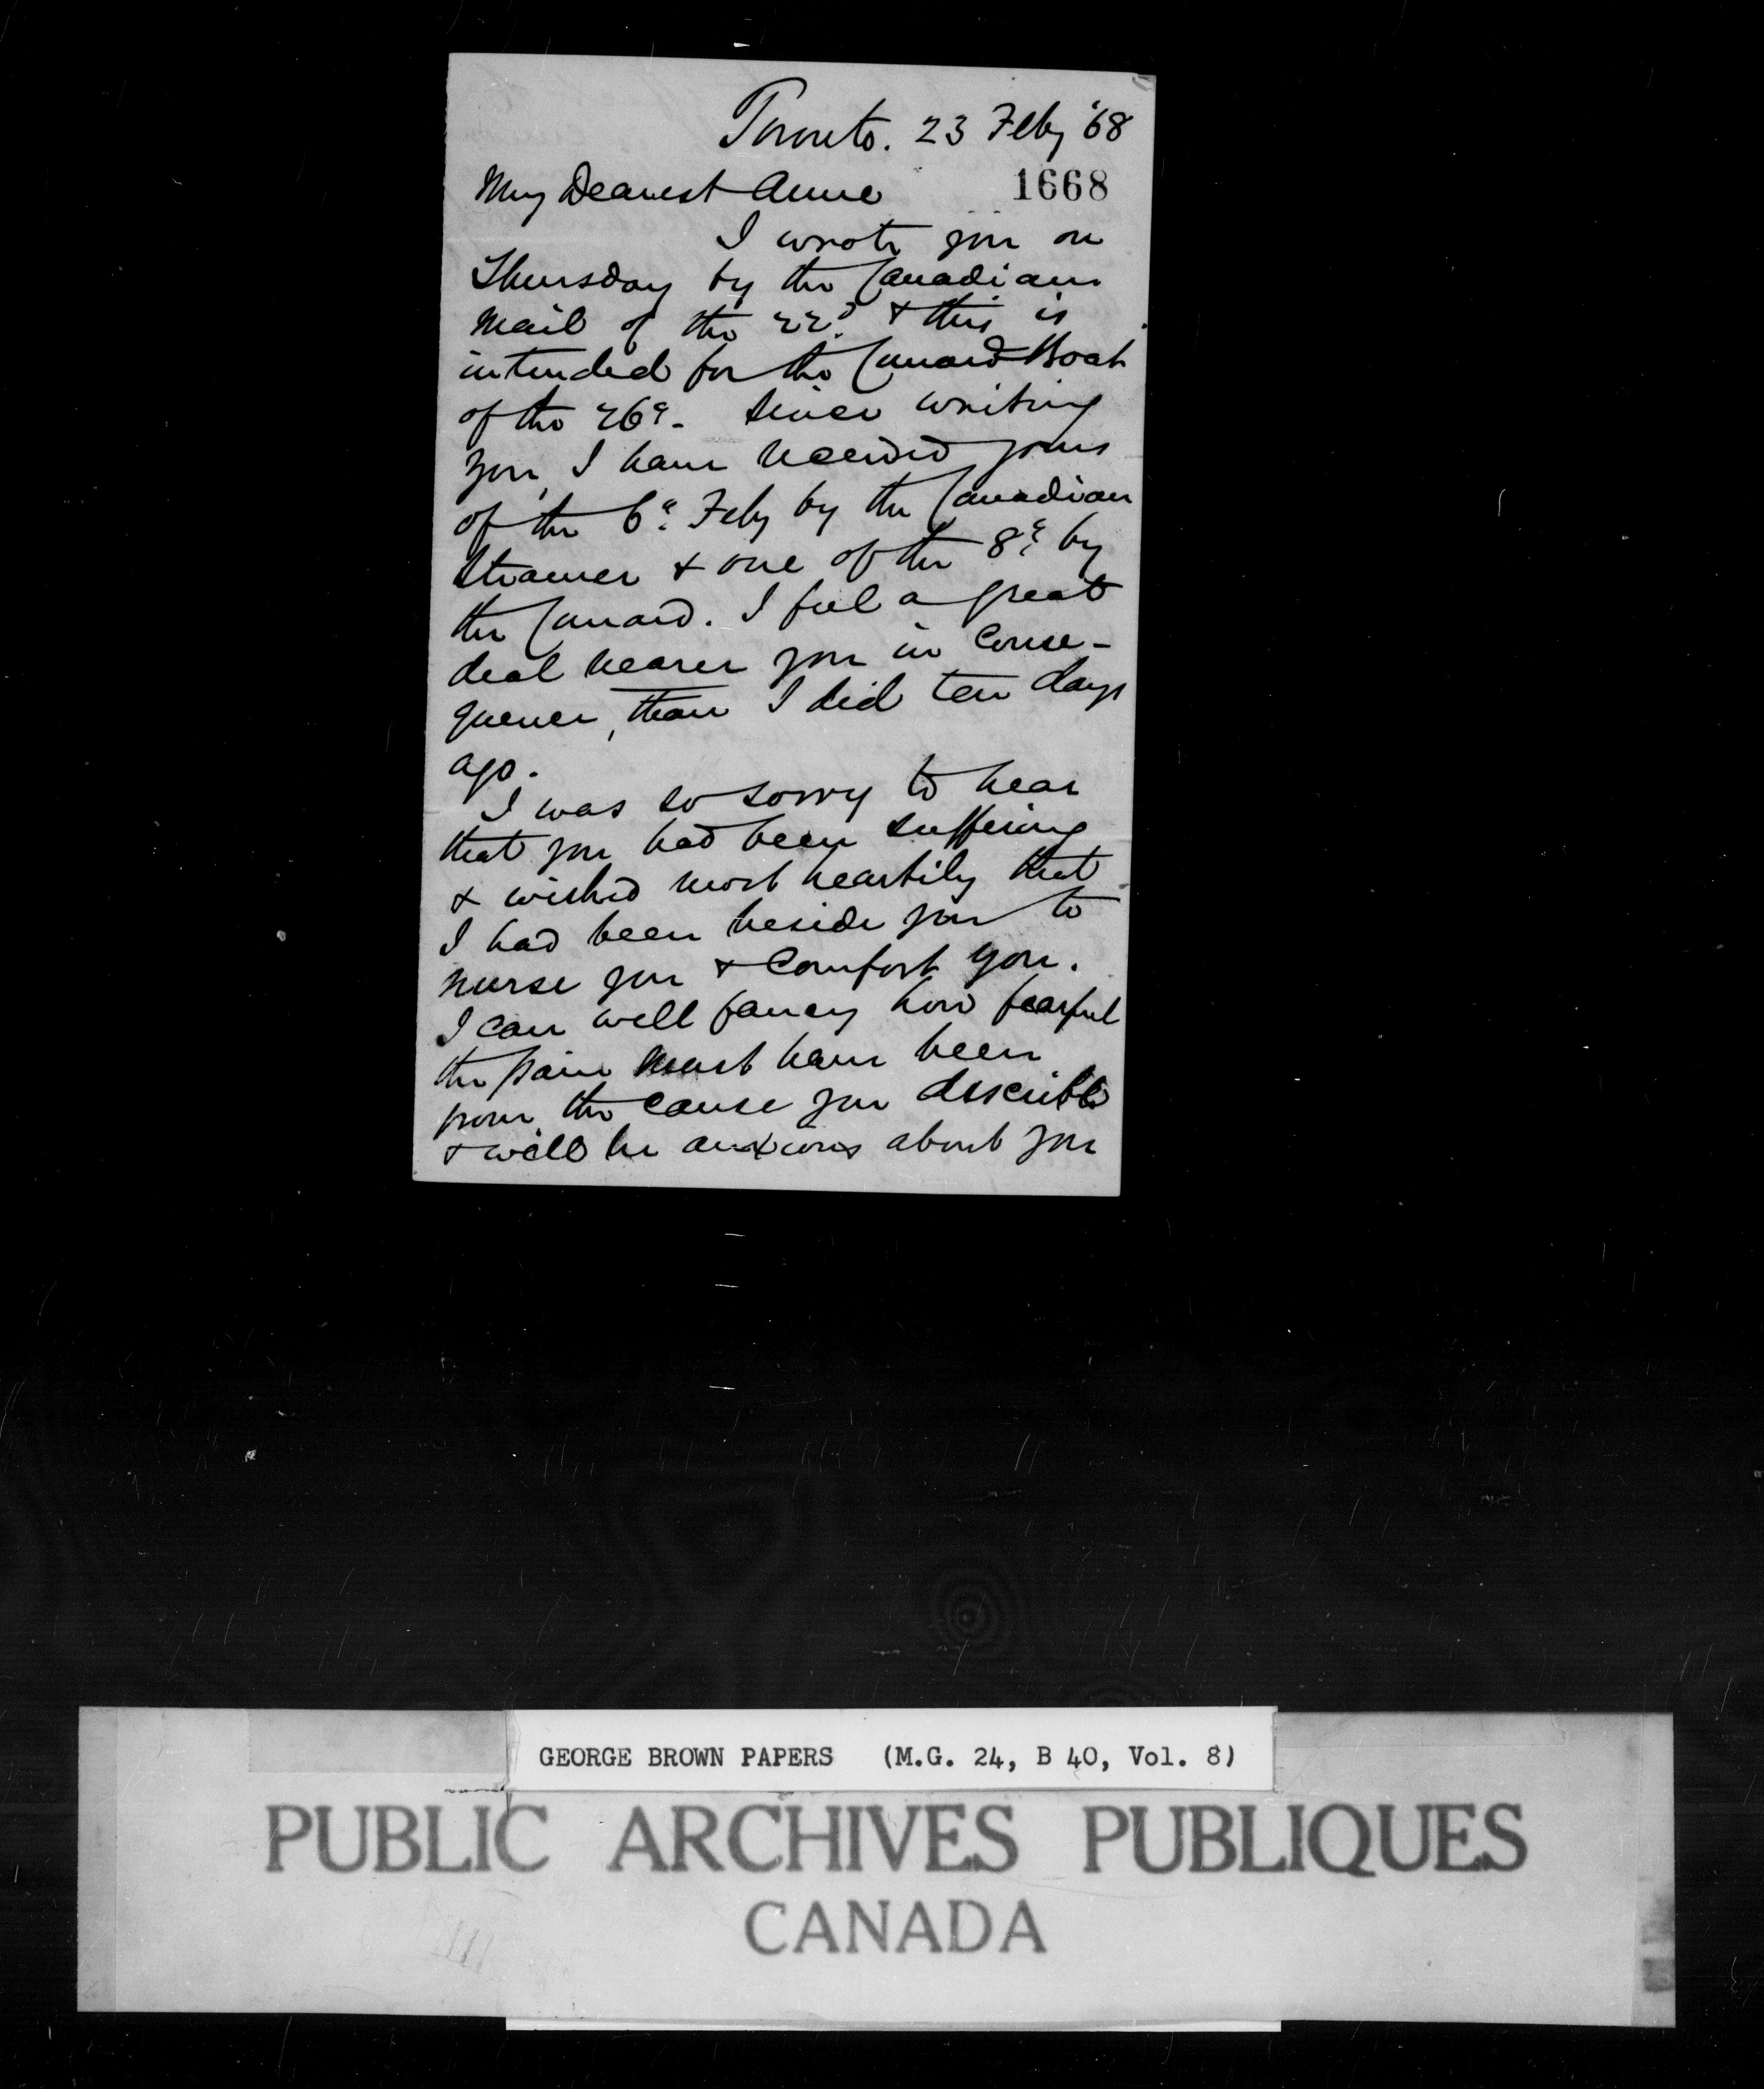 Toronto. 23 Feby '68
1668
My Dearest Anne
I wrote you on
Thursday by the Canadian
Mail of the 22d. & this is
intended for the Cunard Boat
of the 26th. Since writing
you, I have received yours
of the 6th. Feby by the Canadian
Steamer & one of the 8th. by
the Cunard. I feel a great
deal nearer you in conse-
quence, than I did ten days
ago.
I was so sorry to hear
that you had been suffering
& wished most heartily that
I had been beside you to
nurse you & comfort you.
I can well fancy how fearful
the pain must have been
from the cause you describe
& will be anxious about you
GEORGE BROWN PAPERS (M.G. 24, B 40, Vol. 8)
PUBLIC ARCHIVES PUBLIQUES
CANADA